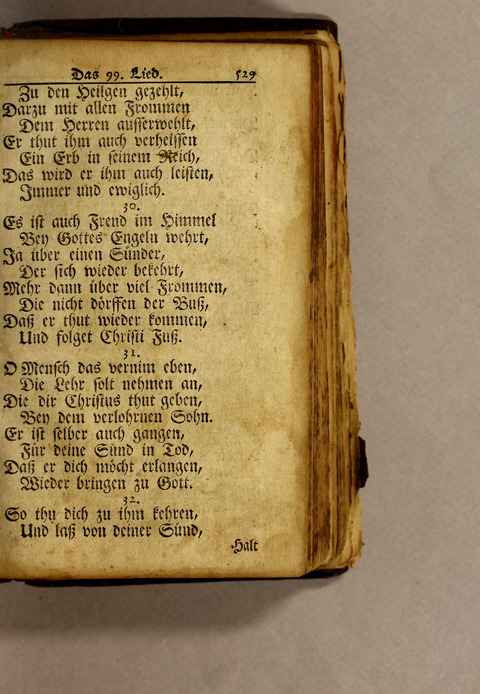 Das 99. Lied. 529
Zu den Heilgen gezehlt,
Darzu mit allen Frommen
Dem Herren ausserwehlt,
Er thut ihm auch verheissen
Ein Erb in seinem Reich,
Das wird er ihm auch leisten,
Immer und ewiglich.
30.
Es ist auch Freud im Himmel
Bey Gottes Engeln wehrt,
Ja über einen Sünder,
Der sich wieder bekehrt,
Mehr dann über viel Frommen,
Die nicht dörffen der Buß,
Daß er thut wieder kommen,
Und folget Christi Fuß.
31.
O Mensch das vernim eben,
Die Lehr solt nehmen an,
Die dir Christus thut geben,
Bey dem verlohrnen Sohn.
Er ist selber auch gangen,
Für deine Sünd in Tod,
Daß er dich möcht erlangen,
Wieder bringen zu Gott.
32.
So thu dich zu ihm kehren,
Und laß von deiner Sünd,
Halt